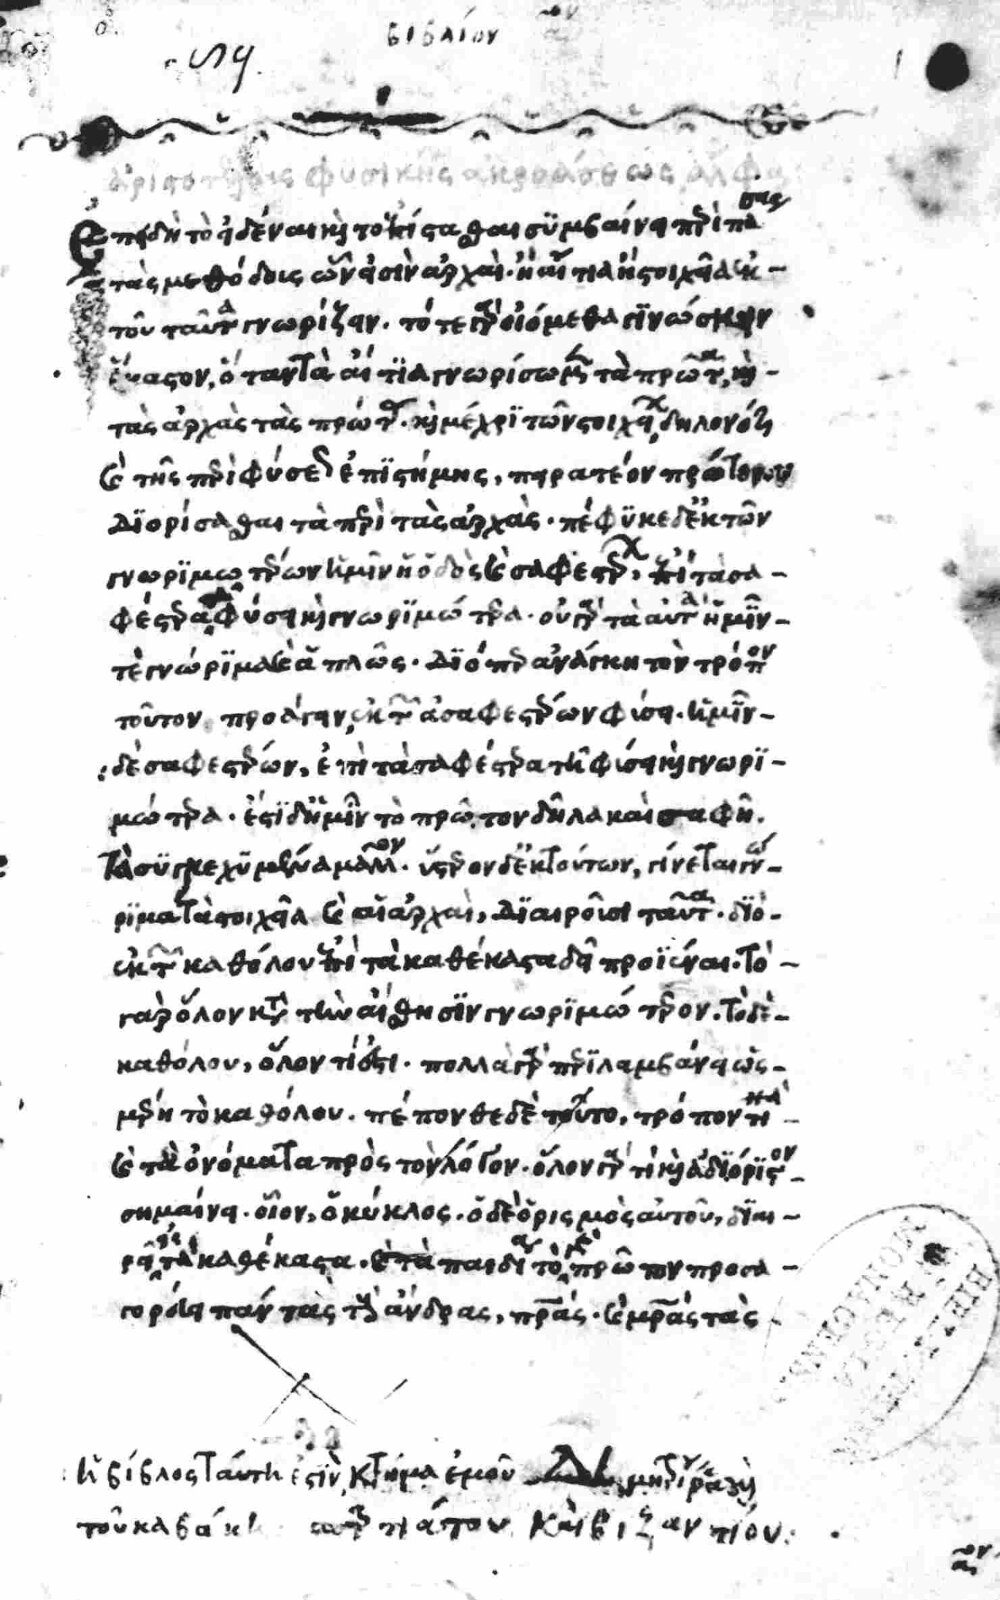 βιβλίον αον
ἀριστοτέλους φυσικῆς ἀκροάσεως ἄλφα
Ἐπειδὴ τὸ εἰδέναι καὶ τὸ ἐπίστασθαι συμβαίνει περὶ πάσας
τὰς μεθόδους ὧν εἰσὶν ἀρχαὶ ἢ αἴτια ἢ στοιχεῖα ἐκ
τοῦ ταῦτα γνωρίζειν. τότε γὰρ οἰόμεθα γινώσκειν
ἕκαστον, ὅταν τὰ αἴτια γνωρίσωμεν τὰ πρῶτα, καὶ
τὰς ἀρχὰς τὰς πρώτας. καὶ μέχρι τῶν στοιχείων, δηλονότι
καὶ τῆς περὶ φύσεως ἐπιστήμης, πειρατέον πρότερον
διορίσασθαι τὰ περὶ τὰς ἀρχάς. πέφυκε δὲ ἐκ τῶν
γνωριμωτέρων ἡμῖν ἡ ὁδὸς καὶ σαφεστέρων, ἐπὶ τὰ σα
φέστερα φύσει καὶ γνωριμώτερα. οὐ γὰρ ταὐτὰ ἡμῖν
τὲ γνώριμα καὶ ἁπλῶς. διόπερ ἀνάγκη τὸν τρόπον
τοῦτον προάγειν, ἐκ τῶν ἀσαφεστέρων φύσει. ἡμῖν
δὲ σαφεστέρων, ἐπὶ τὰ σαφέστερα τῇ φύσει καὶ γνωρι
μώτερα. ἔστι δὴ ἡμῖν τὸ πρῶτον δῆλα καὶ σαφῆ.
τὰ συγκεχυμένα μᾶλλον. ὕστερον δὲ ἐκ τούτων, γίνεται γνώ
ριμα τὰ στοιχεῖα καὶ αἱ ἀρχαὶ, διαιροῦσι ταῦτα. διὸ
ἐκ τῶν καθόλου ἐπὶ τὰ καθέκαστα δεῖ προϊέναι. τὸ
γὰρ ὅλον κατὰ τὴν αἴσθησιν γνωριμώτερον. τὸ δὲ
καθόλου, ὅλον τί ἐστι. πολλὰ γὰρ περιλαμβάνει ὡς
μέρη τὸ καθόλου. πέπονθε δὲ τοῦτο, τρόπον τινὰ
καὶ τὰ ὀνόματα πρὸς τὸν λόγον. ὅλον γάρ τι καὶ ἀδιόριστον
σημαίνει. οἷον, ὁ κύκλος. ὁ δὲ ὁρισμὸς αὐτοῦ, διαι
ρεῖ εἰς τὰ καθέκαστα. καὶ τὰ παιδία τὸ πρῶτον προσα
γορεύει πάντας τοὺς ἄνδρας, πατέρας. καὶ μητέρας τὰς
ἡ βίβλος ταύτη ἐστὶν κτῆμα ἐμοῦ